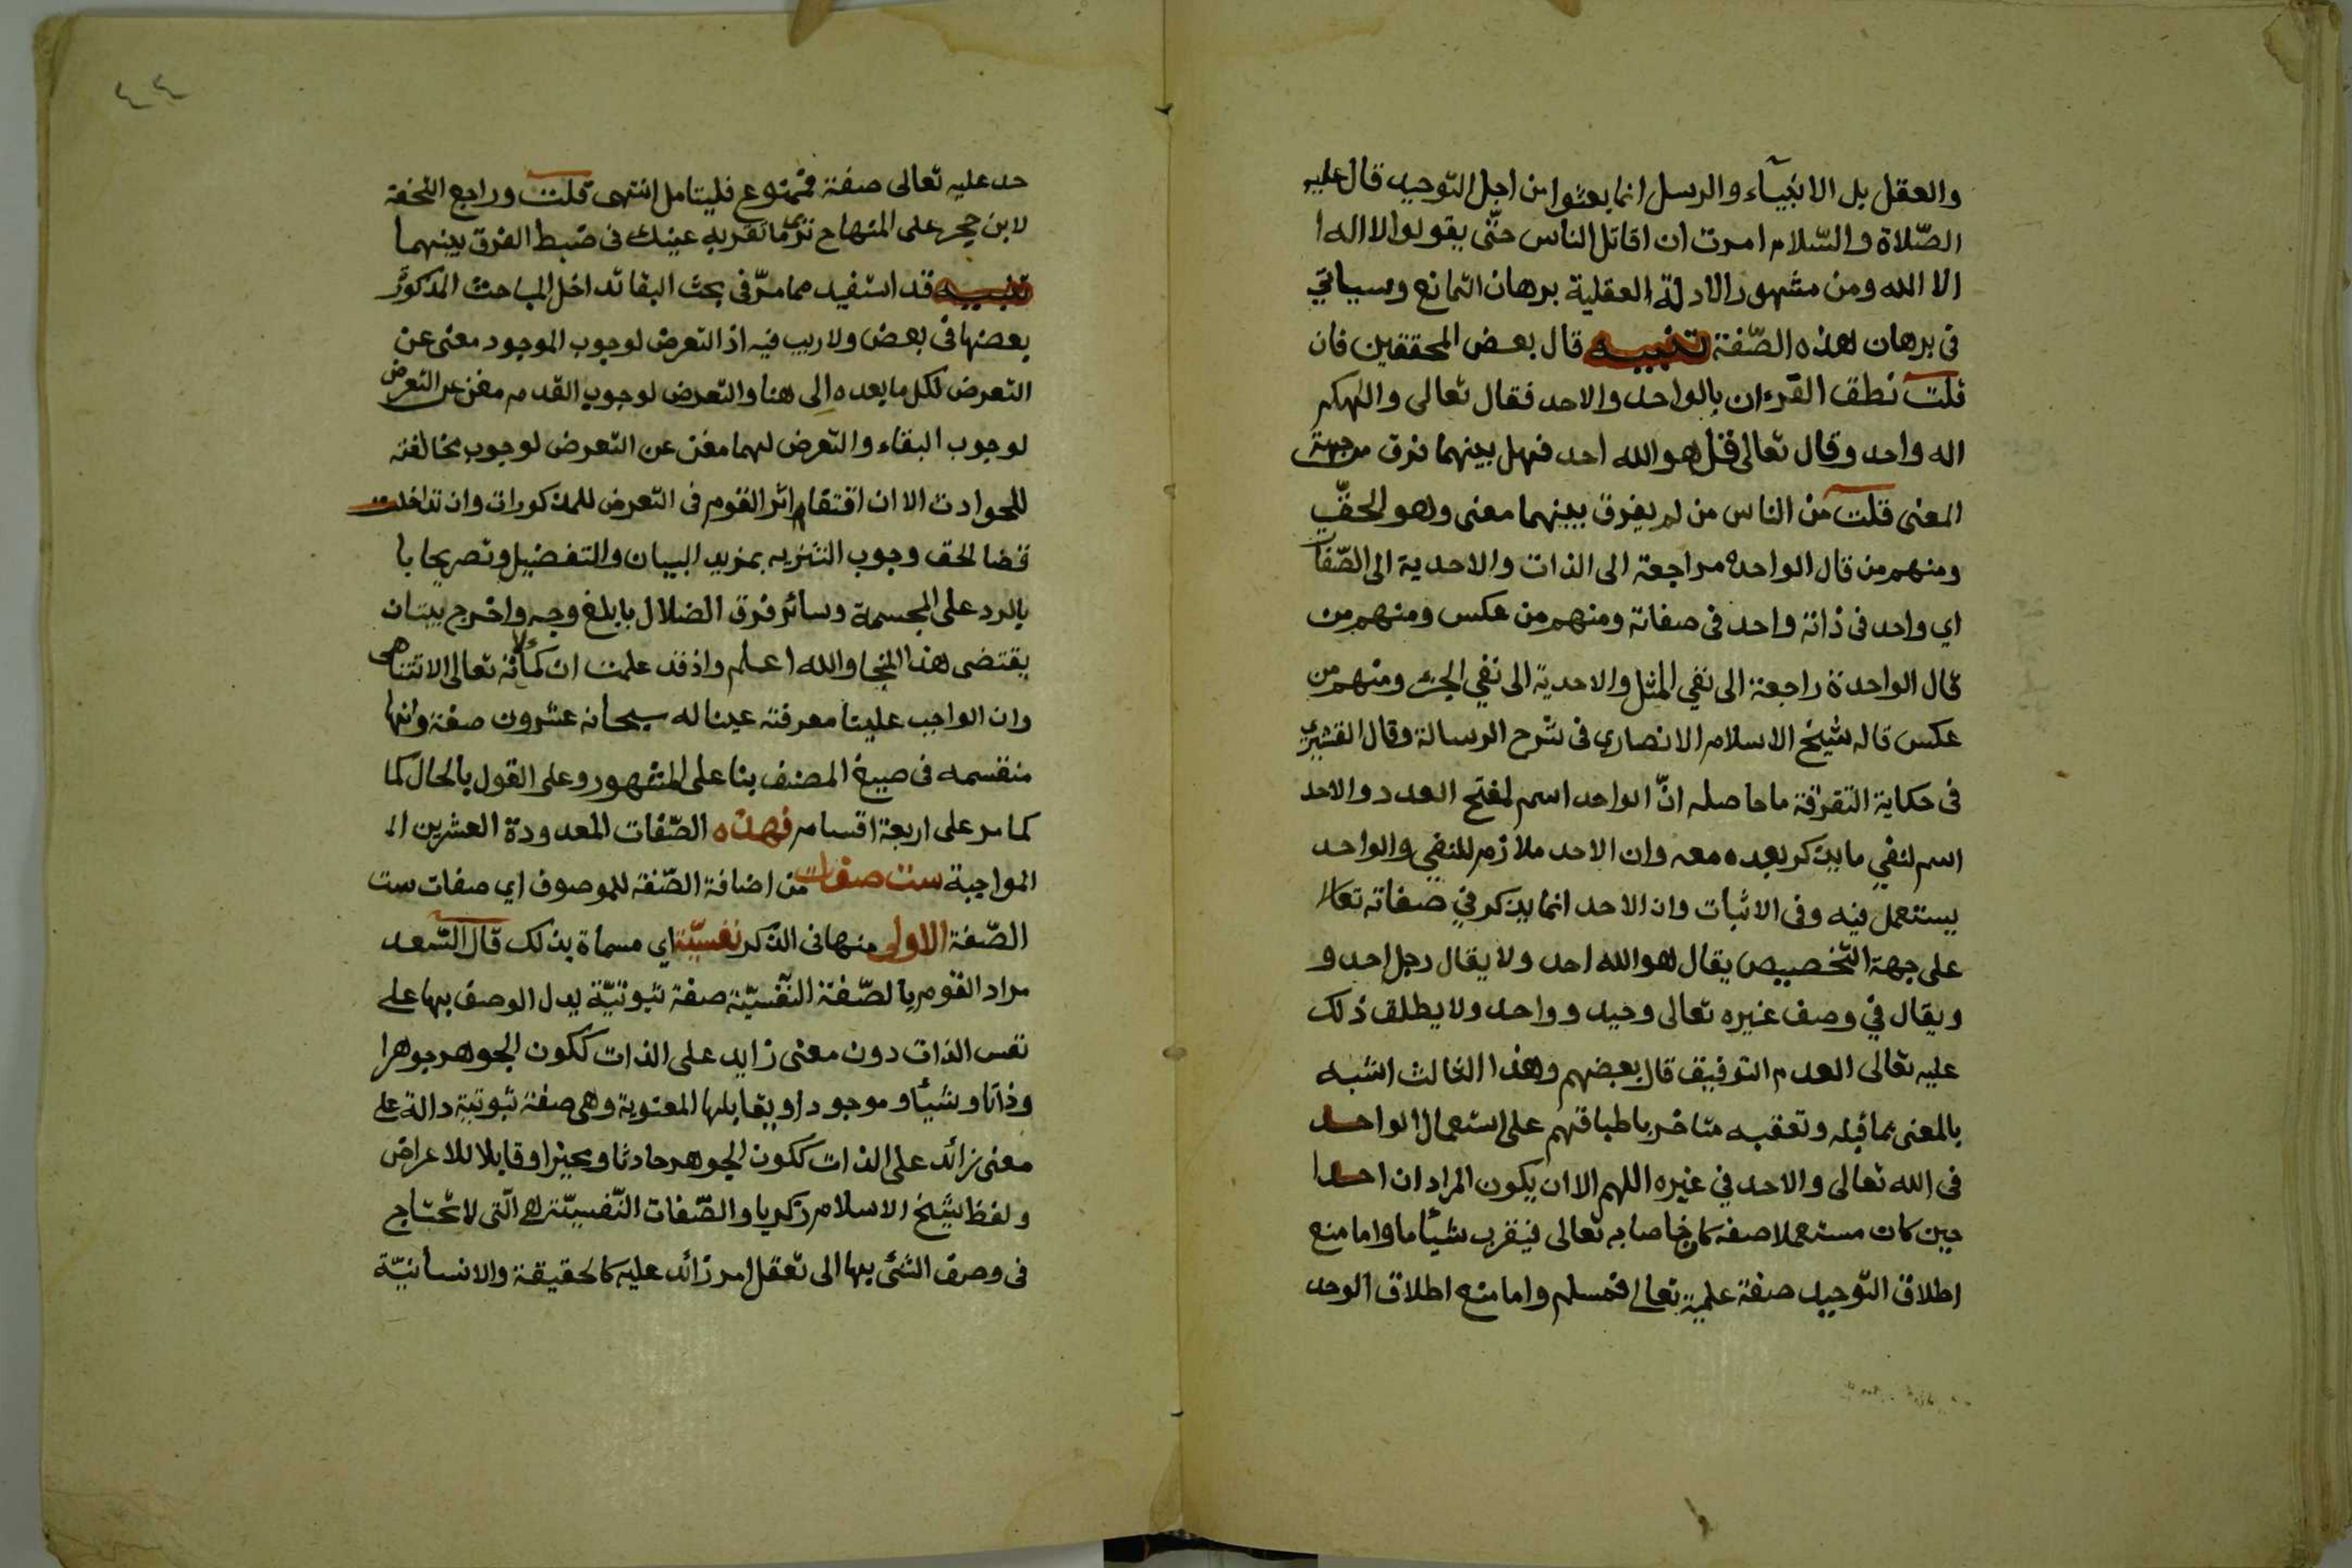 والعقل بل الانبيآء والرسل انما بعثوا من اجل التوحيد قال عليه
الصّلاة والسّلام امرت ان اقاتل الناس حتّى يقولوا لا اله ا
الا الله ومن مشهور الادلة العقلية برهان التمانع وسياتي
فى برهان هذه الصّفة تنبيه قال بعض المحققين فان
قلت نطق القرءان بالواحد والاحد فقال تعالى والهكم
اله واحد وقال تعالى قل هو الله احد فهل بينهما فرق من جهة
المعنى قلت من الناس من لم يفرق بينهما معنى وهو الحقّ
ومنهم من قال الواحدة مراجعة الى الذات والاحدية الى الصّفات
اي واحد فى ذاته واحد فى صفاته ومنهم من عكس ومنهم من
قال الواحدة راجعة الى نفي المثل والاحدية الى نفي الجزء ومنهم من
عكس قاله شيخ الاسلام الانصاري فى شرح الرسالة وقال القشيري
فى حكاية التفرقة ما حاصله انّ الواحد اسم لمفتح العدد والاحد
اسم لنفي ما يذكر بعده معه وان الاحد ملازم للنفي والواحد
يستعمل فيه وفى الاثبات وان الاحد انما يذكر في صفاته تعالى
على جهة التخصيص يقال هو الله احد ولا يقال رجل احد و
ويقال في وصف غيره تعالى وحيد وواحد ولا يطلق ذلك
عليه تعالى العدم التوفيق قال بعضهم وهذا الثالث اشبه
بالمعنى بما قبله وتعقبه متاخر باطباقهم على استعمال الواحد
فى الله تعالى والاحد في غيره اللهم الا ان يكون المراد ان احدا
حين كان مستعملا صفة كان خاصا به تعالى فيقرب شيأما واما منع
اطلاق التّوحيد صفة علمية تعالى فمسلم واما منع اطلاق الوحد
٤٤
حد عليه تعالى صفة فممنوع فليتامل انتهى قلت وراجع التحفة
لابن حجر على المنهاج ترى ما تقر به عينك فى ضبط الفرق بينهما
تنبيه قد استفيد مما مرّ فى بحث البقا تداخل المباحث المذكورة
بعضها فى بعض ولا ريب فيه اذ التعرض لوجوب الموجود معنى عن
التعرض لكل ما بعده الى هنا والتعرض لوجوب القدم مغن عن التعرض
لوجوب البقاء والتعرض لهما مغن عن التعرض لوجوب مخالفته
للحوادث الا ان اقتفاء اثر القوم فى التعرض للمذكورات وان تداخلت
قضا لحق وجوب التنزيه بمزيد البيان والتفضيل وتصريحا با
بالرد على المجسمة وسائر فرق الضلال بابلغ وجه واخرج بيتان
يقتضى هذا المنحا والله اعلم واذ قد علمت ان كمالاته تعالى لا تتناهى
وان الواجب علينا معرفته عينا له سبحانه عشرون صفة وانها
منقسمه فى صبيغ المصنف بنا على المشهور وعلى القول بالحال كما
كما مر على اربعة اقسام فهذه الصّفات المعدودة العشرين ال
المواجبة ست صفات من اضافة الصّفة للموصوف اي صفات ست
الصّفة الاولى منها فى الذكر نفسيّة اي مسماة بذلك قال السّعد
مراد القوم بالصّفة النّفسيّة صفة ثبوتيّة يدل الوصف بها على
نفس الذات دون معنى زايد على الذات ككون الجوهر جوهرا
وذاتا وشيأ وموجودا ويقابلها المعنوية وهى صفة ثبوتية دالة على
معنى زائد على الذات ككون الجوهر حادثا ومتحيزا وقابلا للاعراض
ولفظ شيخ الاسلام زكريا والصّفات النّفسيّة هى الّتى لا تحتاج
فى وصف الشئ بها الى تعقل امر زائد عليه كالحقيقة والانسانيّة